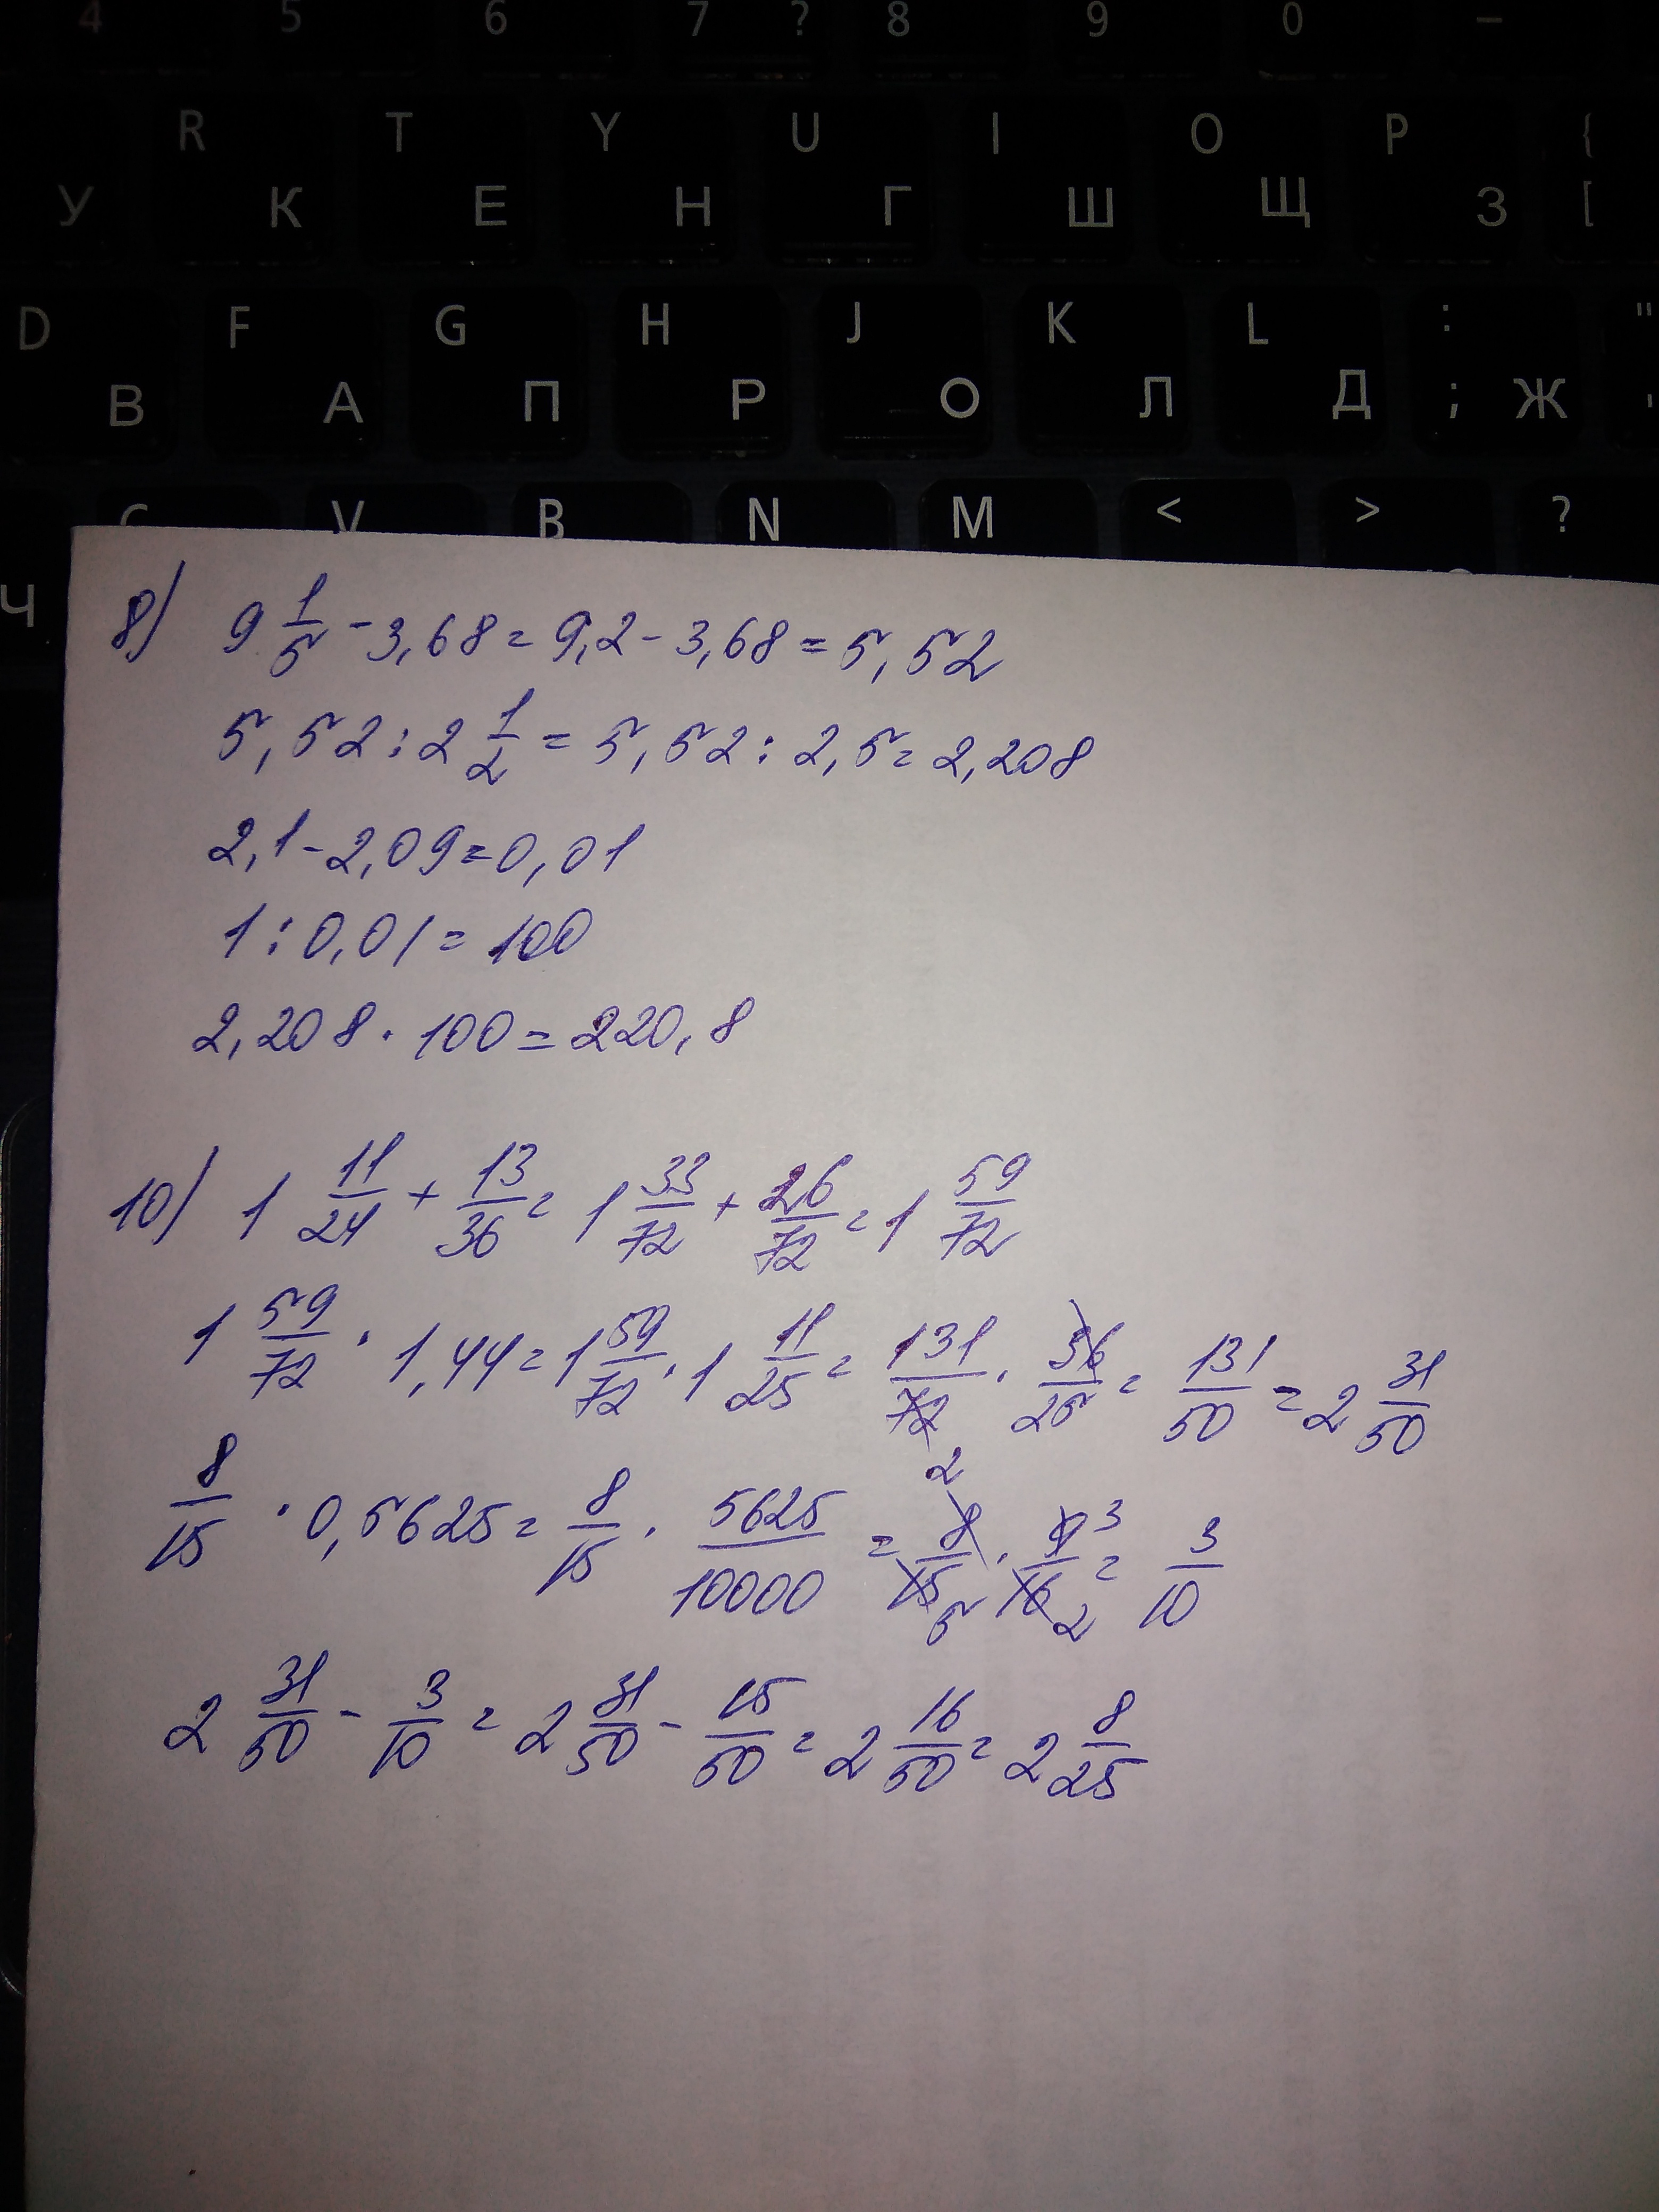 4 5 6 7 ? 8 9 0 —
R T Y U I O P {
У К Е Н Г Ш Щ З [
D F G H J K L : "
В А П Р О Л Д ; Ж '
C V B N M < > ?
Ч
8) 9 1/5 - 3,68 = 9,2 - 3,68 = 5,52
5,52 : 2 1/2 = 5,52 : 2,5 = 2,208
2,1 - 2,09 = 0,01
1 : 0,01 = 100
2,208 · 100 = 220,8
10) 1 11/24 + 13/36 = 1 33/72 + 26/72 = 1 59/72
1 59/72 · 1,44 = 1 59/72 · 1 11/25 = 131/72 2 · 36/25 = 131/50 = 2 31/50
8/15 · 0,5625 = 8/15 · 5625/10000 = 8/15 5 · 9 3/16 2 = 3/10
2 31/50 - 3/10 = 2 31/50 - 15/50 = 2 16/50 = 2 8/25